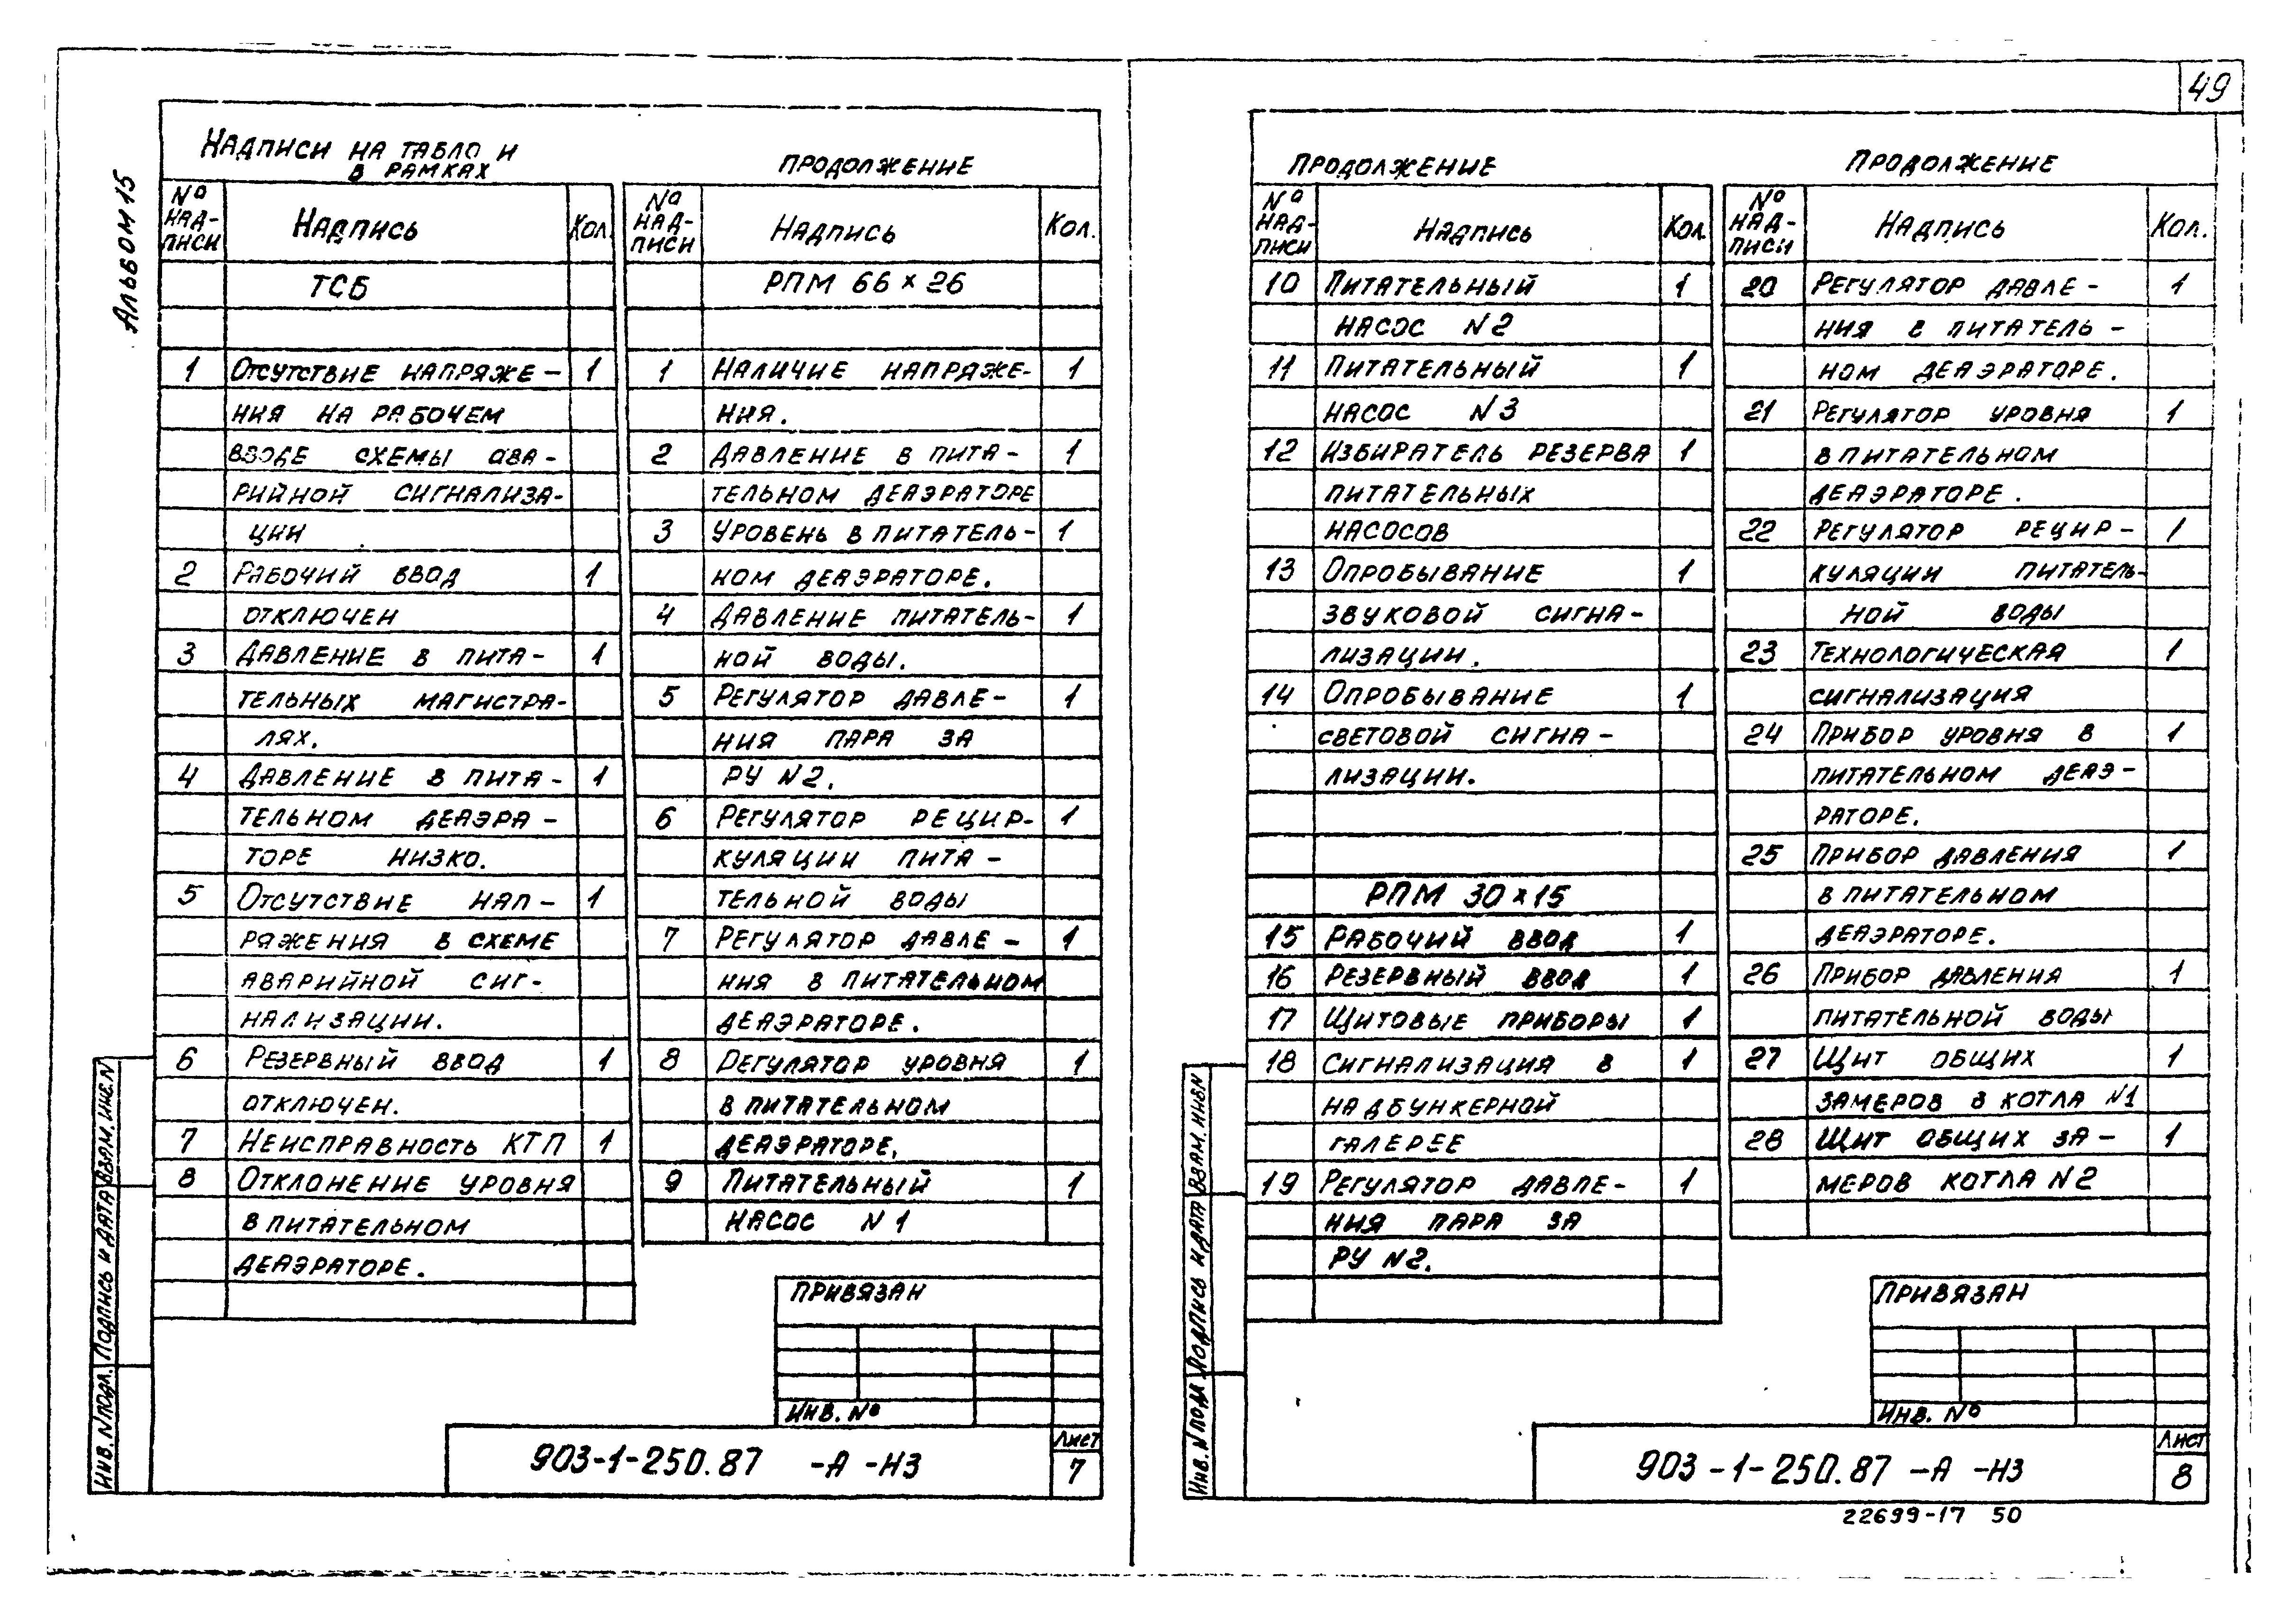 49
Альбом 15
Надписи на табло и
в рамках
№
над-
писи
Надпись
Кол.
ТСБ
1 Отсутствие напряже- 1
ния на рабочем
вводе схемы ава-
рийной сигнализа-
ции
2 Рабочий ввод 1
отключен
3 Давление в пита- 1
тельных магистра-
лях.
4 Давление в пита- 1
тельном деаэра-
торе низко.
5 Отсутствие нап- 1
ряжения в схеме
аварийной сиг-
нализации.
6 Резервный ввод 1
отключен.
7 Неисправность КТП 1
8 Отклонение уровня
в питательном
деаэраторе.
продолжение
№
над-
писи
Надпись
Кол.
РПМ 66×26
1 Наличие напряже- 1
ния.
2 Давление в пита- 1
тельном деаэраторе
3 Уровень в питатель- 1
ном деаэраторе.
4 Давление питатель- 1
ной воды.
5 Регулятор давле- 1
ния пара за
РУ N2.
6 Регулятор рецир- 1
куляции пита-
тельной воды
7 Регулятор давле- 1
ния в питательном
деаэраторе.
8 Регулятор уровня 1
в питательном
деаэраторе.
9 Питательный 1
насос N1
Привязан
Инв. №
903-1-250.87 -А -НЗ
Лист
7
Инв. N подл. Подпись и дата Взам. инв. N
Продолжение
№
над-
писи
Надпись
Кол.
10 Питательный 1
насос N2
11 Питательный 1
насос N3
12 Избиратель резерва 1
питательных
насосов
13 Опробывание 1
звуковой сигна-
лизации.
14 Опробывание 1
световой сигна-
лизации.
РПМ 30×15
15 Рабочий ввод 1
16 Резервный ввод 1
17 Щитовые приборы 1
18 Сигнализация в 1
надбункерной
галерее
19 Регулятор давле- 1
ния пара за
РУ N2.
Продолжение
№
над-
писи
Надпись
Кол.
20 Регулятор давле- 1
ния в питатель-
ном деаэраторе.
21 Регулятор уровня 1
в питательном
деаэраторе.
22 Регулятор рецир- 1
куляции питатель-
ной воды
23 Технологическая 1
сигнализация
24 Прибор уровня в 1
питательном деаэ-
раторе.
25 Прибор давления 1
в питательном
деаэраторе.
26 Прибор давления 1
питательной воды
27 Щит общих 1
замеров в котла N1
28 Щит общих за- 1
меров котла N2
Привязан
Инв. №
903-1-250.87 -А -НЗ
Лист
8
Инв. N подл Подпись и дата Взам. инв N
22699-17 50